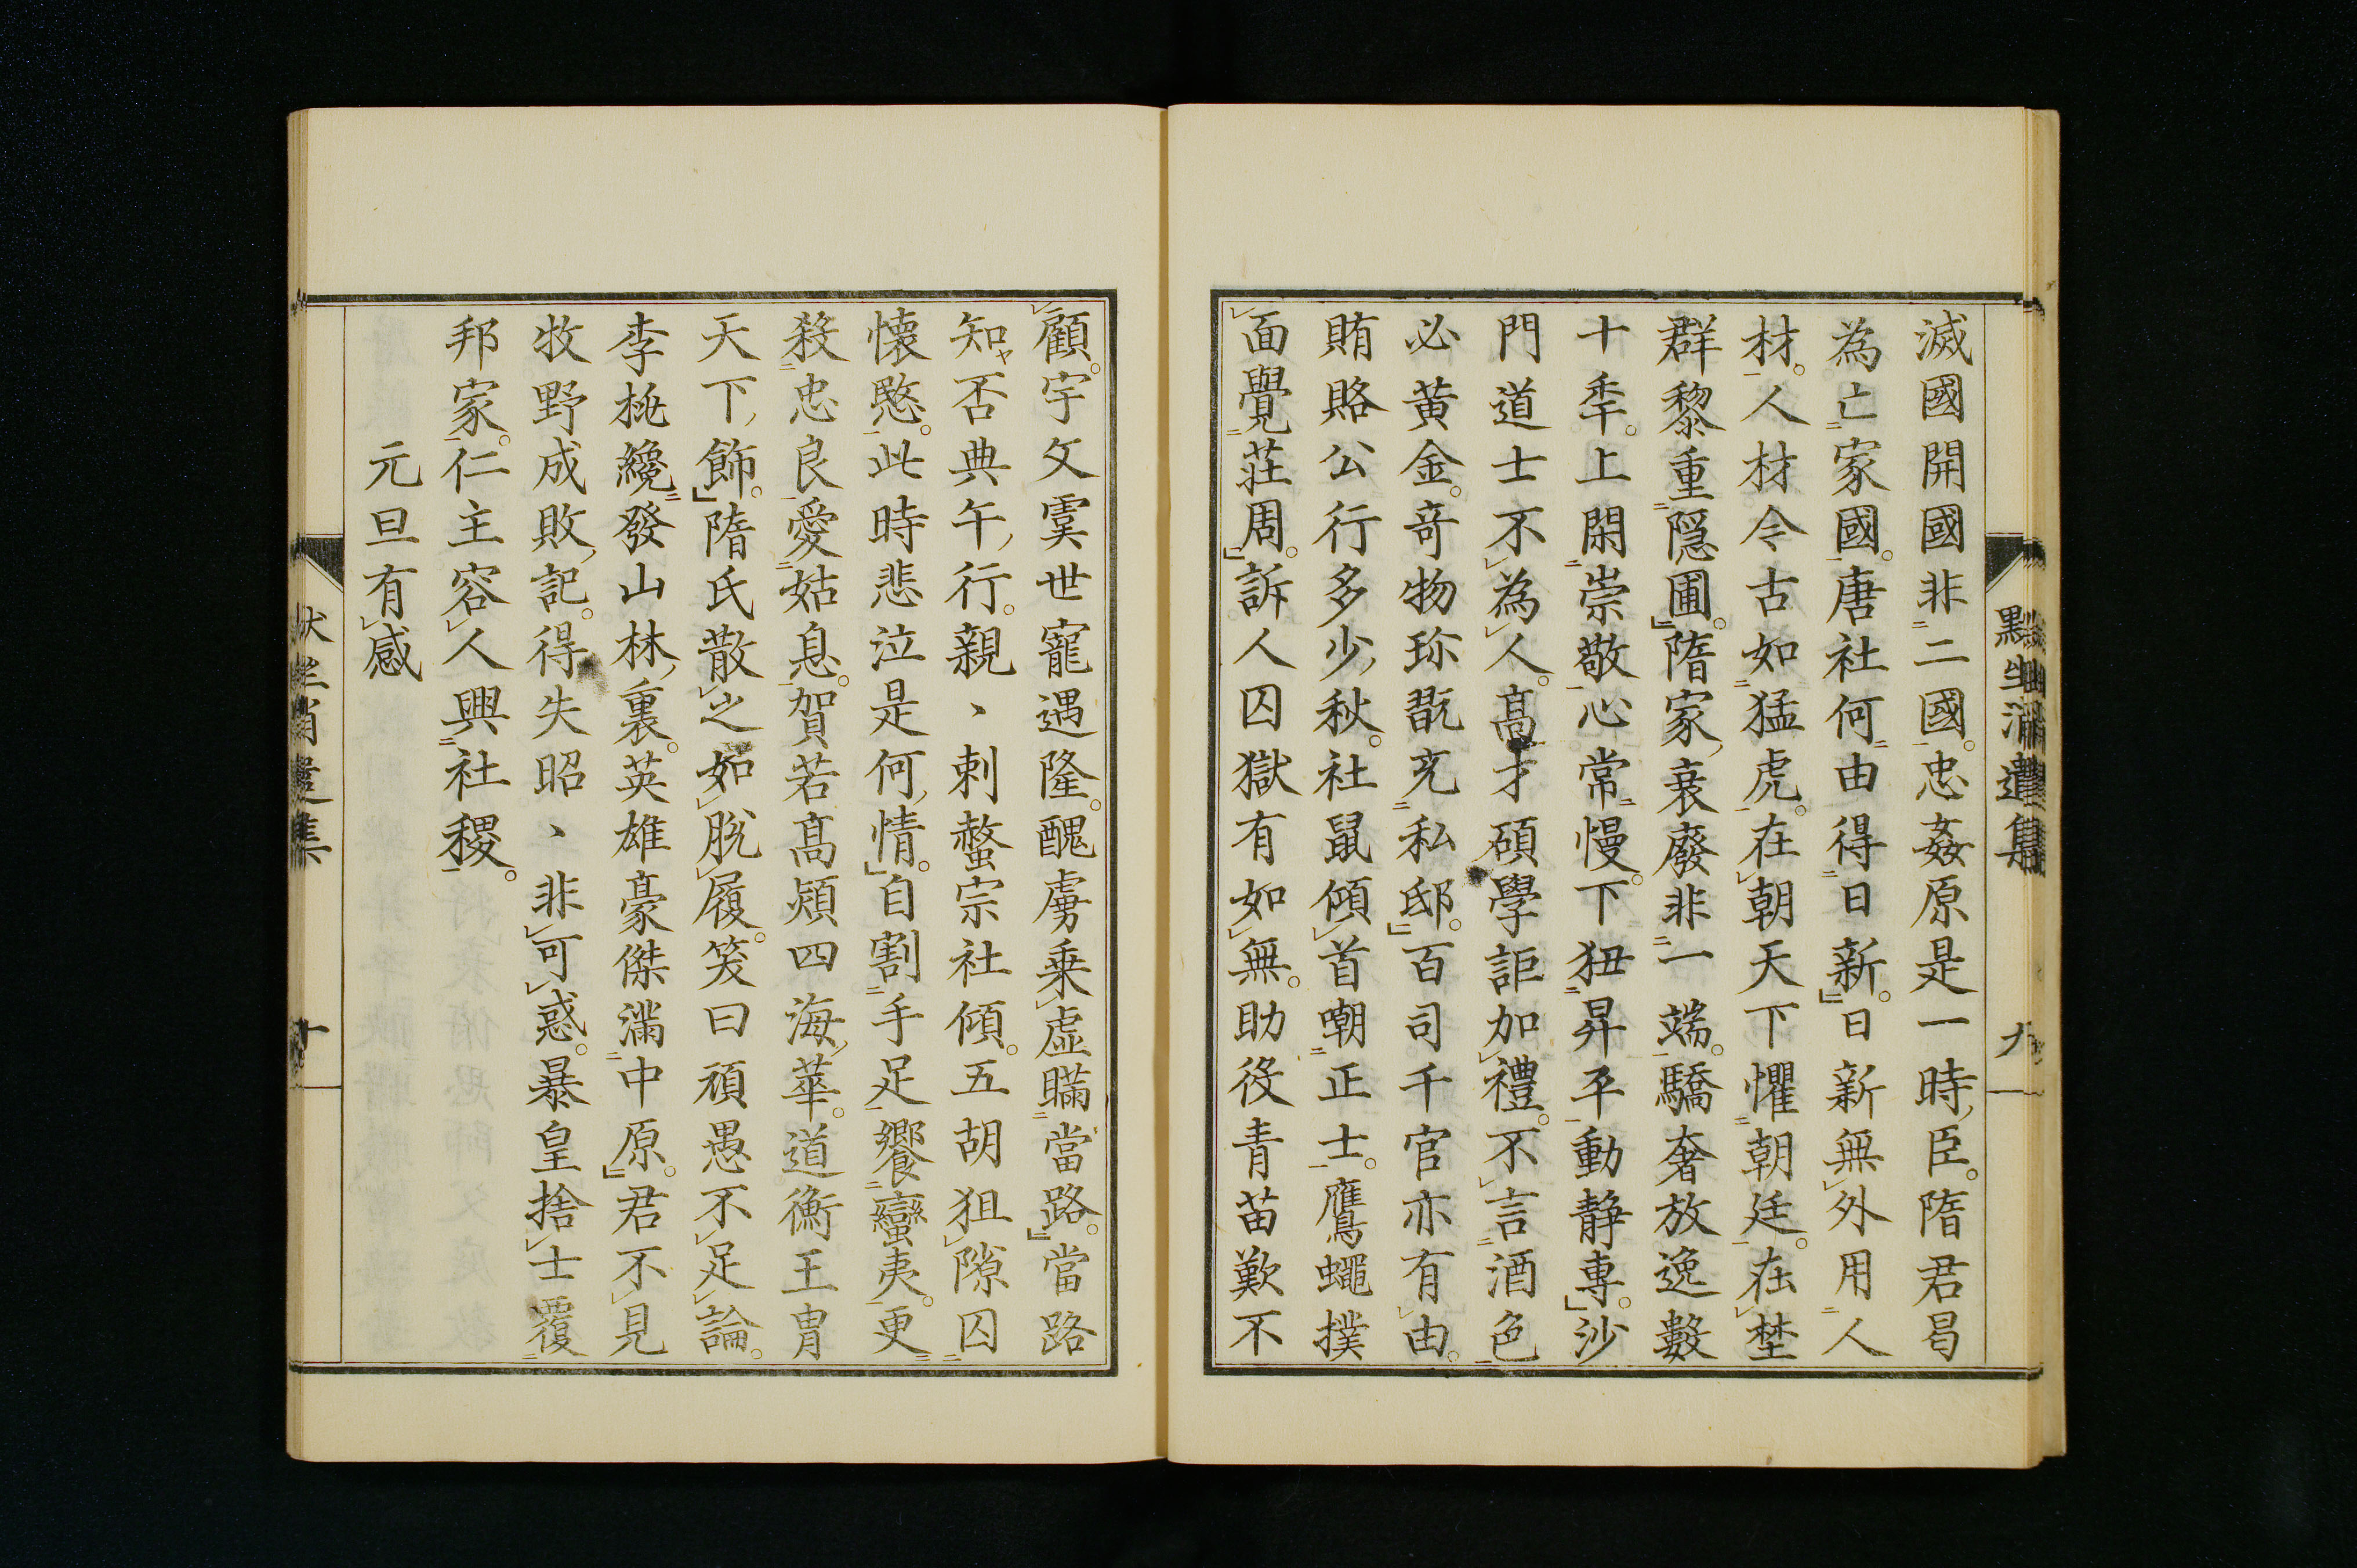 滅國開國非二國。忠姦原是一時臣。隋君曷
為亡家國。唐社何由得日新。日新無外用人
材。人材令古如猛虎。在朝天下懼朝廷。在埜
群黎重隠圃。隋家衰廢非一端。驕奢放逸數
十秊。上閑崇敬心常慢。下狃昇平動静専。沙
門道士不為人。高才碩學詎加禮。不言酒色
必黄金。奇物珎翫充私邸。百司千官亦有由。
賄賂公行多少秋。社鼠傾首嘲正士。鷹蠅撲
面覺荘周。訴人囚獄有如無。助役青苗歎不
九
顧。宇文㝢世寵遇隆。醜虜乗虚瞞當路。當路
知否典午行。親丶刺螯宗社傾。五胡狙隙囚
懐愍。此時悲泣是何情。自割手足饗蠻夷。更
殺忠良愛姑息。賀若高熲四海華。道衡王冑
天下飾。隋氏散之如脱履。笑曰頑愚不足論。
李桃纔發山林裏。英雄豪傑満中原。君不見
牧野成敗記。得失昭丶非可惑。暴皇捨士覆
邦家。仁主容人興社稷。
元旦有感
十